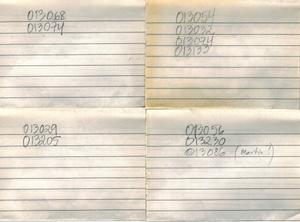 013068
013074
013054
013032
013074
013133
013029
013205
013056
013230
013086 (Martin?)